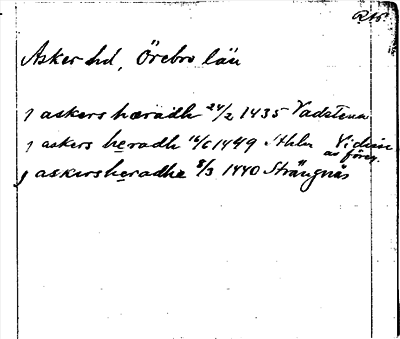 RAp.
Asker hd, Örebro län
j askers haradh 24/2 1435 Vadstena
j askers heradh 16/6 1449 Sthlm Vidim
av föreg.
j askersheradhe 8/3 1440 Strängnäs